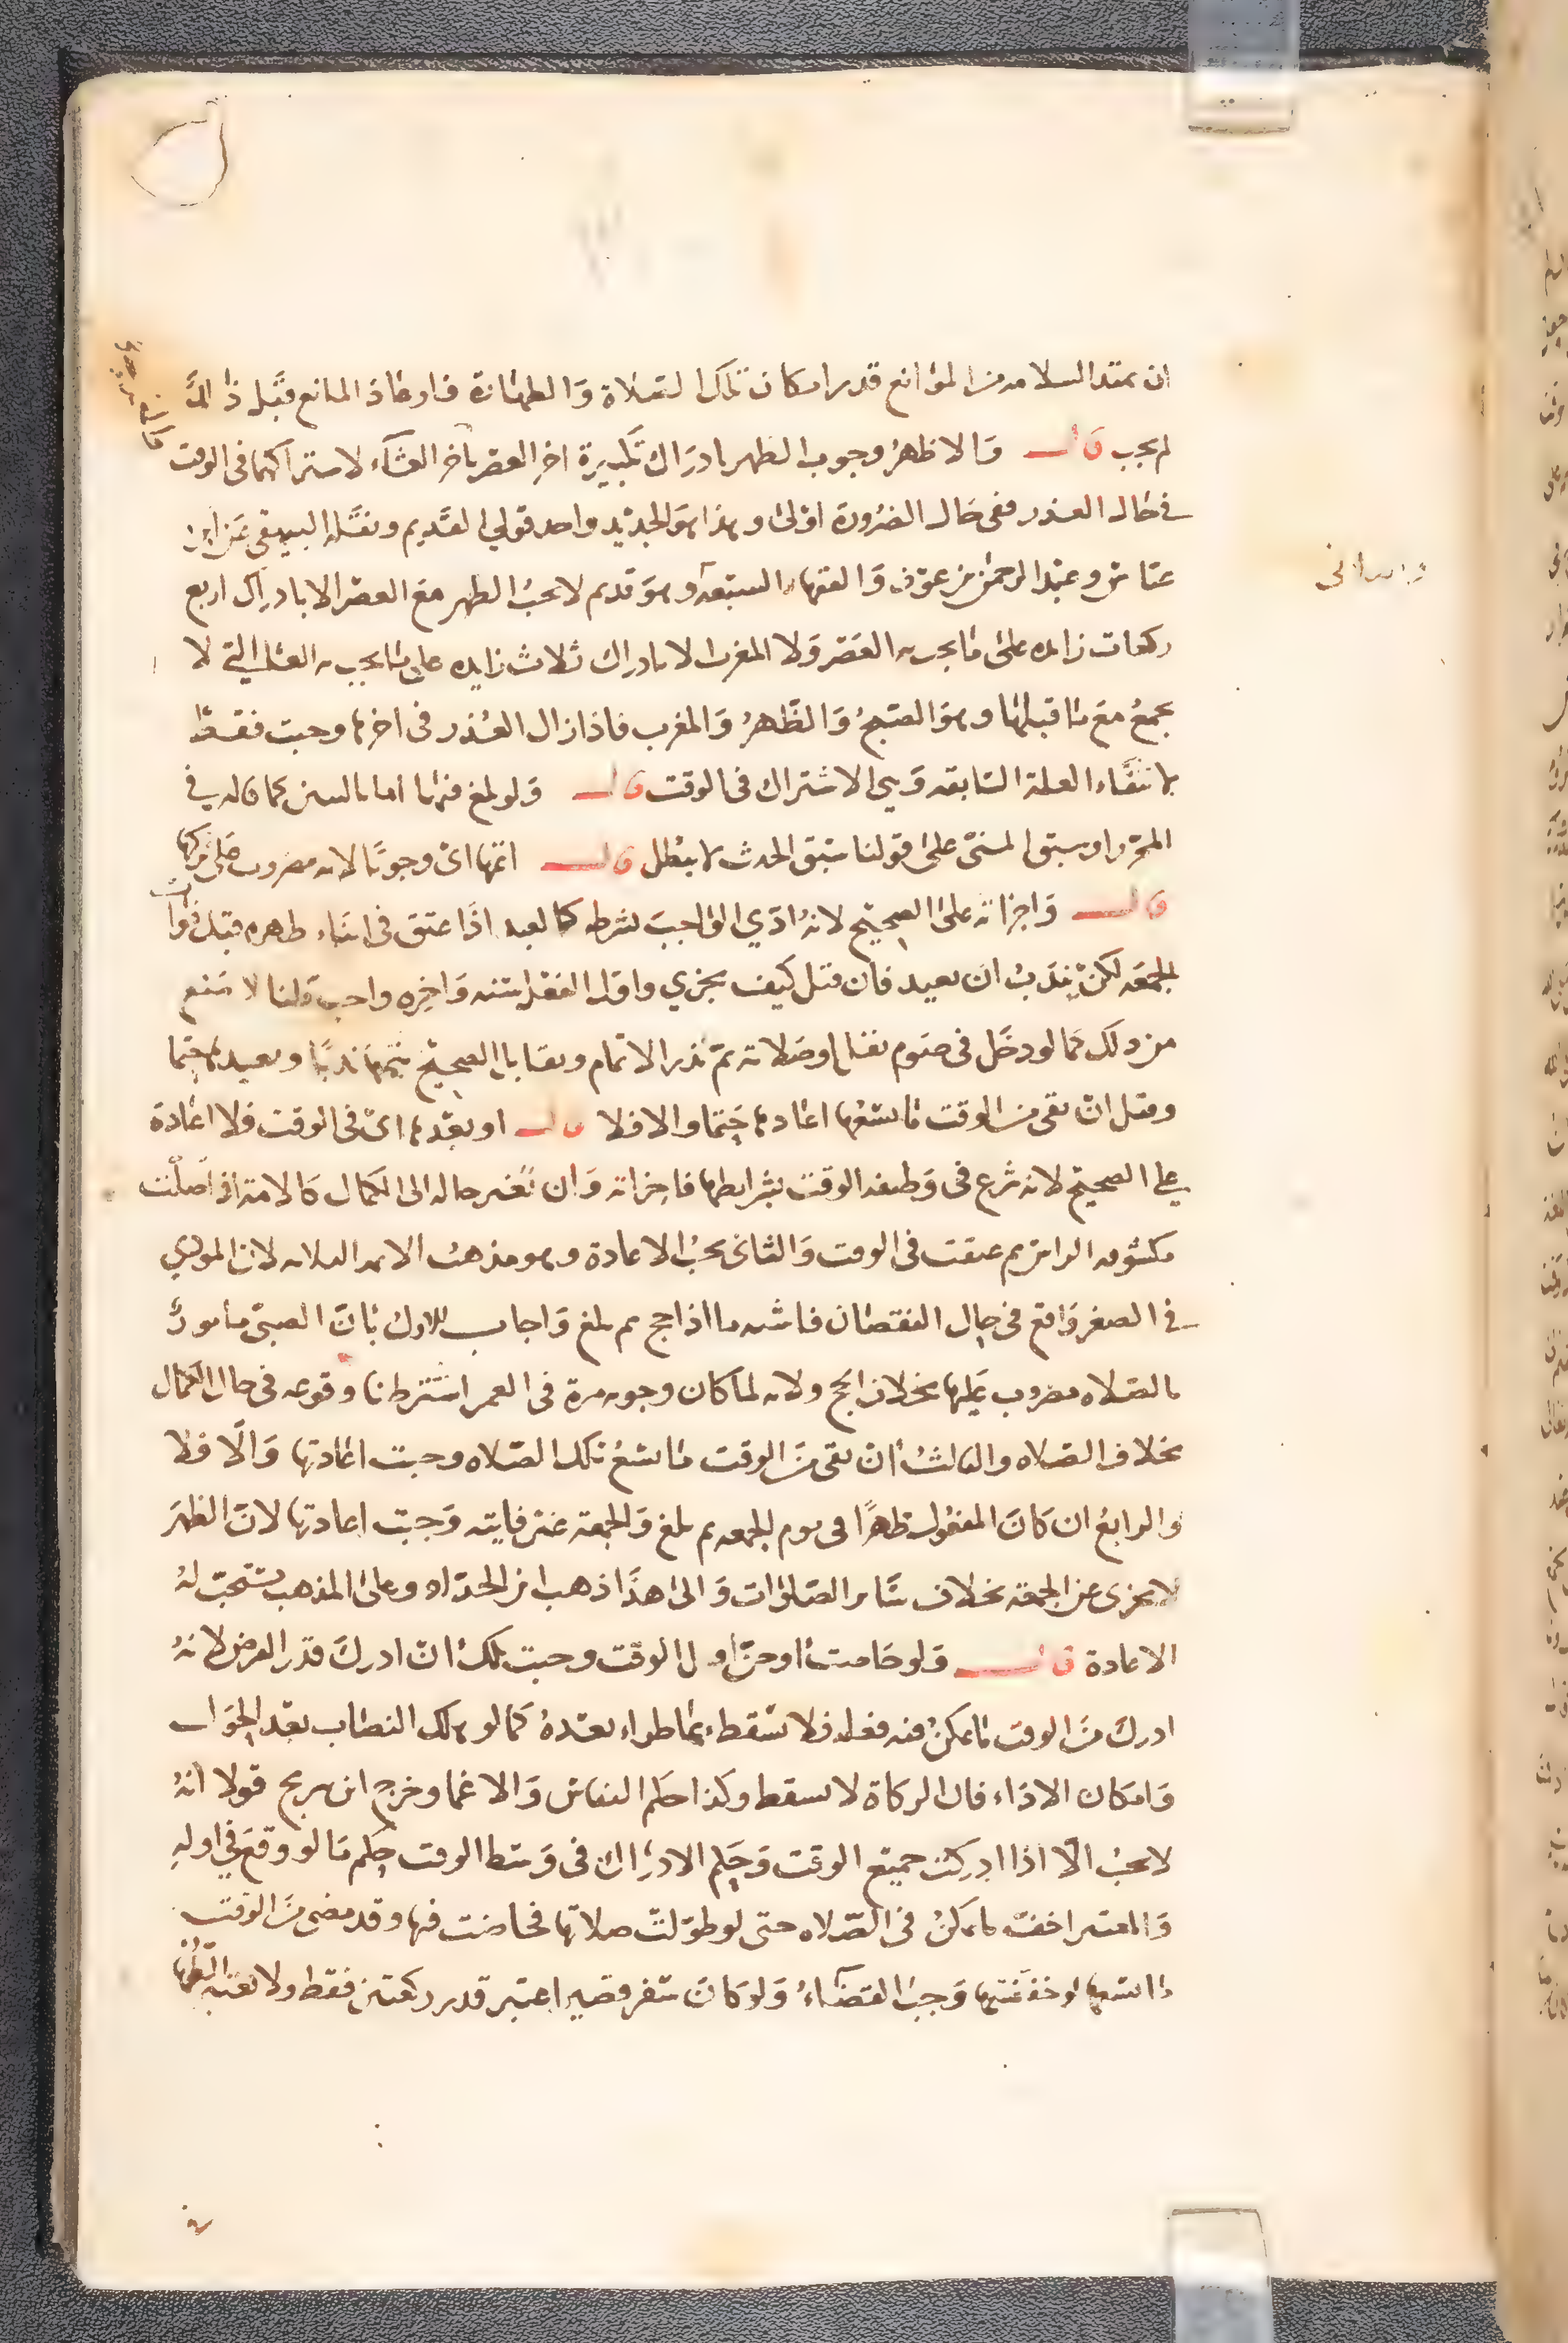 ان تمتد السلامه من الموانع قدر امكان تلك الصلاة والطهارة فلو عاد المانع قبل ذالك
لم يجب قال والاظهر وجوب الظهر بادراك تكبيرة اخر العصر باخر العشاء لاشتراكهما فى الوقت
فى حال العذر ففى حال الضرورة اولى وهذا هو الجديد واحد قولي القديم ونقله البيهقي عن ابن
عباس وعبد الرحمن بن عوف والفقهاء السبعة وهو قديم لا يجب الظهر مع العصر الا بادراك اربع
ركعات زايده على ما يجب به العصر ولا المغرب الا بادراك ثلاث زايده على ما يجب به العشا التي لا
تجمع مع ما قبلها وهو الصبح والظهر والمغرب فاذا زال العذر فى اخرها وجبت فقط
لانتفاء العلة السابقه وهي الاشتراك فى الوقت قال ولو بلغ فيها اما بالسن كما قاله في
المحرر او سبق المنى على قولنا سبق الحدث لا يبطل قال اتمها اى وجوبا لانه مضروب على تركها
قال واجزاته على الصحيح لانه ادي الواجب بشرطه كالعبد اذا عتق فى اثناء ظهره قبل فوات
الجمعه لكن يندب ان يعيد فان قيل كيف يجزي واول الفعل سنه واخره واجب قلنا لا منع
من ذلك كما لو دخل فى صوم نفل او صلاته ثم نذر الاتمام ومقابل الصحيح يتمها ندبا ويعيدها حتما
وقيل ان بقى من الوقت ما يسعها اعادها حتما والا فلا قال او بعدها اى فى الوقت فلا اعادة
على الصحيح لانه شرع فى وظيفه الوقت بشرايطها فاجزاته وان تغير حاله الى الكمال كالامة اذا صلت
مكشوفه الراس ثم عتقت فى الوقت والثانى تجب الاعادة وهو مذهب الايمه الثلاثه لان المودي
في الصغر واقع فى حال النقصان فاشبه ما اذا حج ثم بلغ واجاب الاول بان الصبى مامور
بالصلاه مضروب عليها بخلاف الحج ولانه لما كان وجوبه مرة فى العمر اشترطنا وقوعه فى حال الكمال
بخلاف الصلاه والثالث ان بقى من الوقت ما يسع تلك الصلاه وجبت اعادتها والا فلا
والرابع ان كان المفعول ظهرا فى يوم الجمعه ثم بلغ والجمعة غير فايته وجبت اعادتها لان الظهر
لا يجزى عن الجمعة بخلاف سائر الصلوات والى هذا ذهب ابن الحداد وعلى المذهب يستحب له
الاعادة قال ولو حاضت او جن اول الوقت وجبت تلك ان ادرك قدر الفرض لانه
ادرك من الوقت ما يمكن فيه فعله فلا يسقط بما طراء بعده كما لو هلك النصاب بعد الحول
وامكان الاداء فان الزكاة لا تسقط وكذا حكم النفاس والاغما وخرج ابن سريج قولا انه
لا يجب الا اذا ادركت جميع الوقت وحكم الادراك فى وسط الوقت حكم ما لو وقع في اوله
والمعتبر اخف ما يمكن فى الصلاه حتى لو طولت صلاتها فحاضت فيها وقد مضى من الوقت
ما يسعها لو خففتها وجب القضاء ولو كان سفر قصير اعتبر قدر ركعتين فقط ولا تعتبر الطهارة